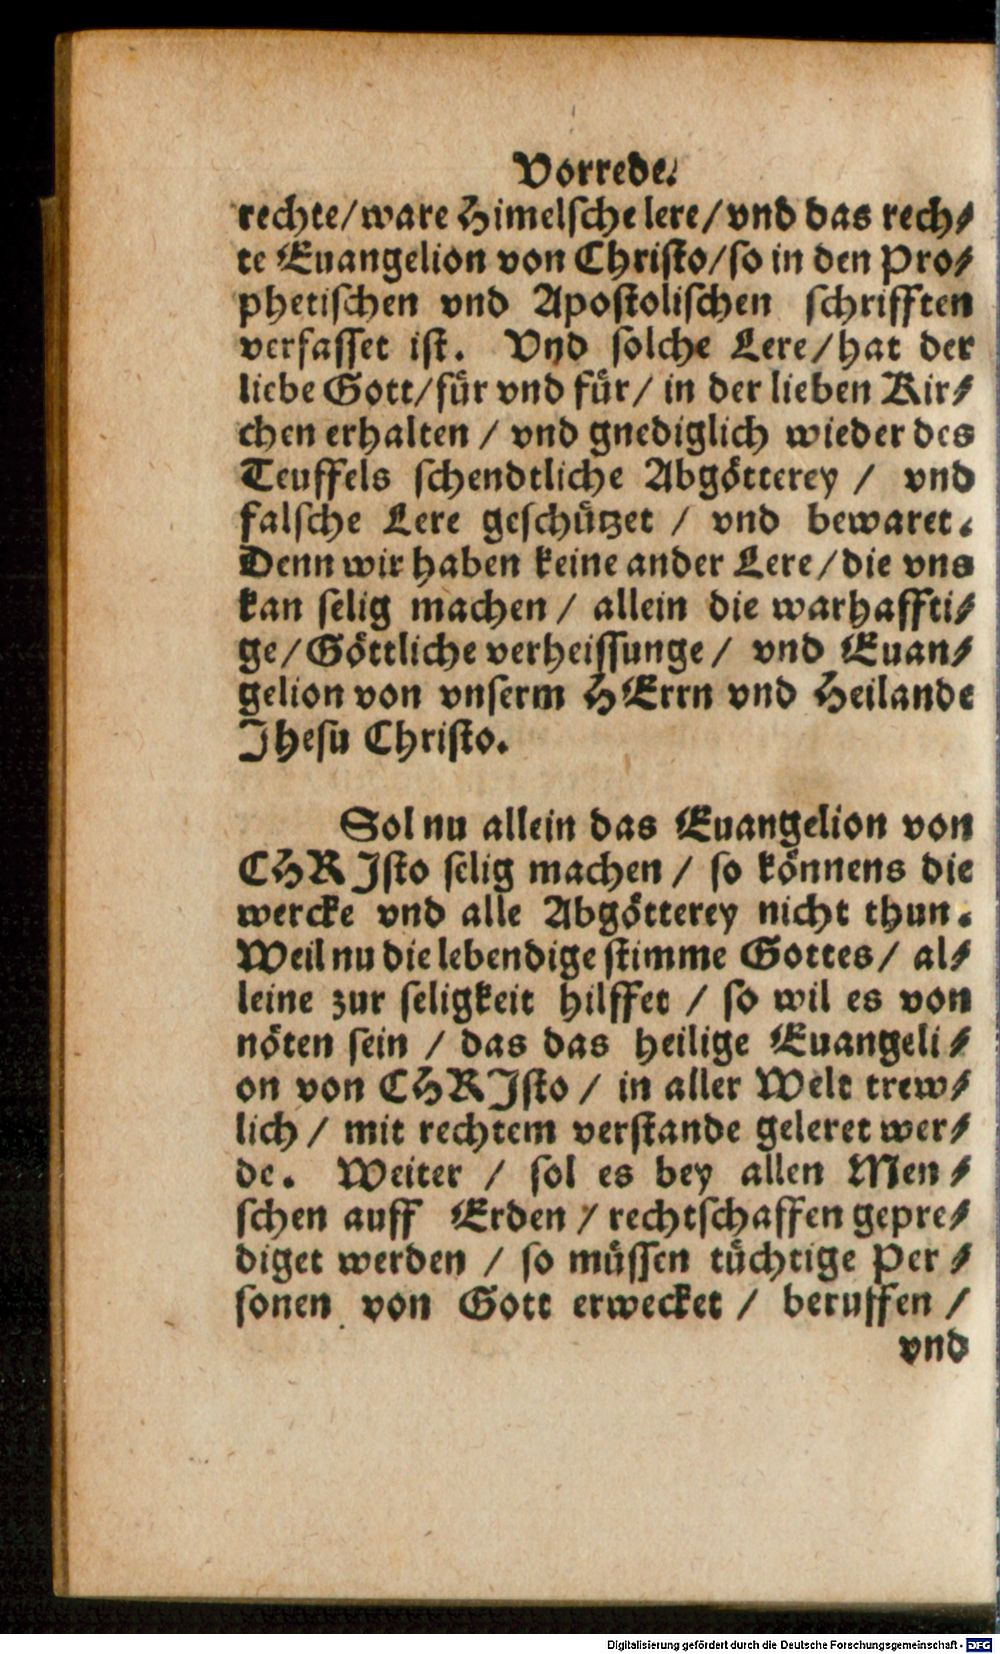 Vorrede.
rechte/ ware Himelsche lere/ vnd das rech⸗
te Euangelion von Christo/ so in den Pro⸗
phetischen vnd Apostolischen schrifften
verfasset ist. Vnd solche Lere/ hat der
liebe Gott/ für vnd für/ in der lieben Kir⸗
chen erhalten / vnd gnediglich wieder des
Teuffels schendtliche Abgötterey / vnd
falsche Lere geschützet / vnd bewaret.
Denn wir haben keine ander Lere/ die vns
kan selig machen / allein die warhaffti⸗
ge/ Göttliche verheissunge / vnd Euan⸗
gelion von vnserm HErrn vnd Heilande
Jhesu Christo.
Sol nu allein das Euangelion von
CHRJsto selig machen / so könnens die
wercke vnd alle Abgötterey nicht thun.
Weil nu die lebendige stimme Gottes / al⸗
leine zur seligkeit hilffet / so wil es von
nöten sein / das das heilige Euangeli⸗
on von CHRJsto / in aller Welt trew⸗
lich / mit rechtem verstande geleret wer⸗
de. Weiter / sol es bey allen Men⸗
schen auff Erden / rechtschaffen gepre⸗
diget werden / so müssen tüchtige Per⸗
sonen von Gott erwecket / beruffen /
vnd
Digitalisierung gefördert durch die Deutsche Forschungsgemeinschaft - DFG